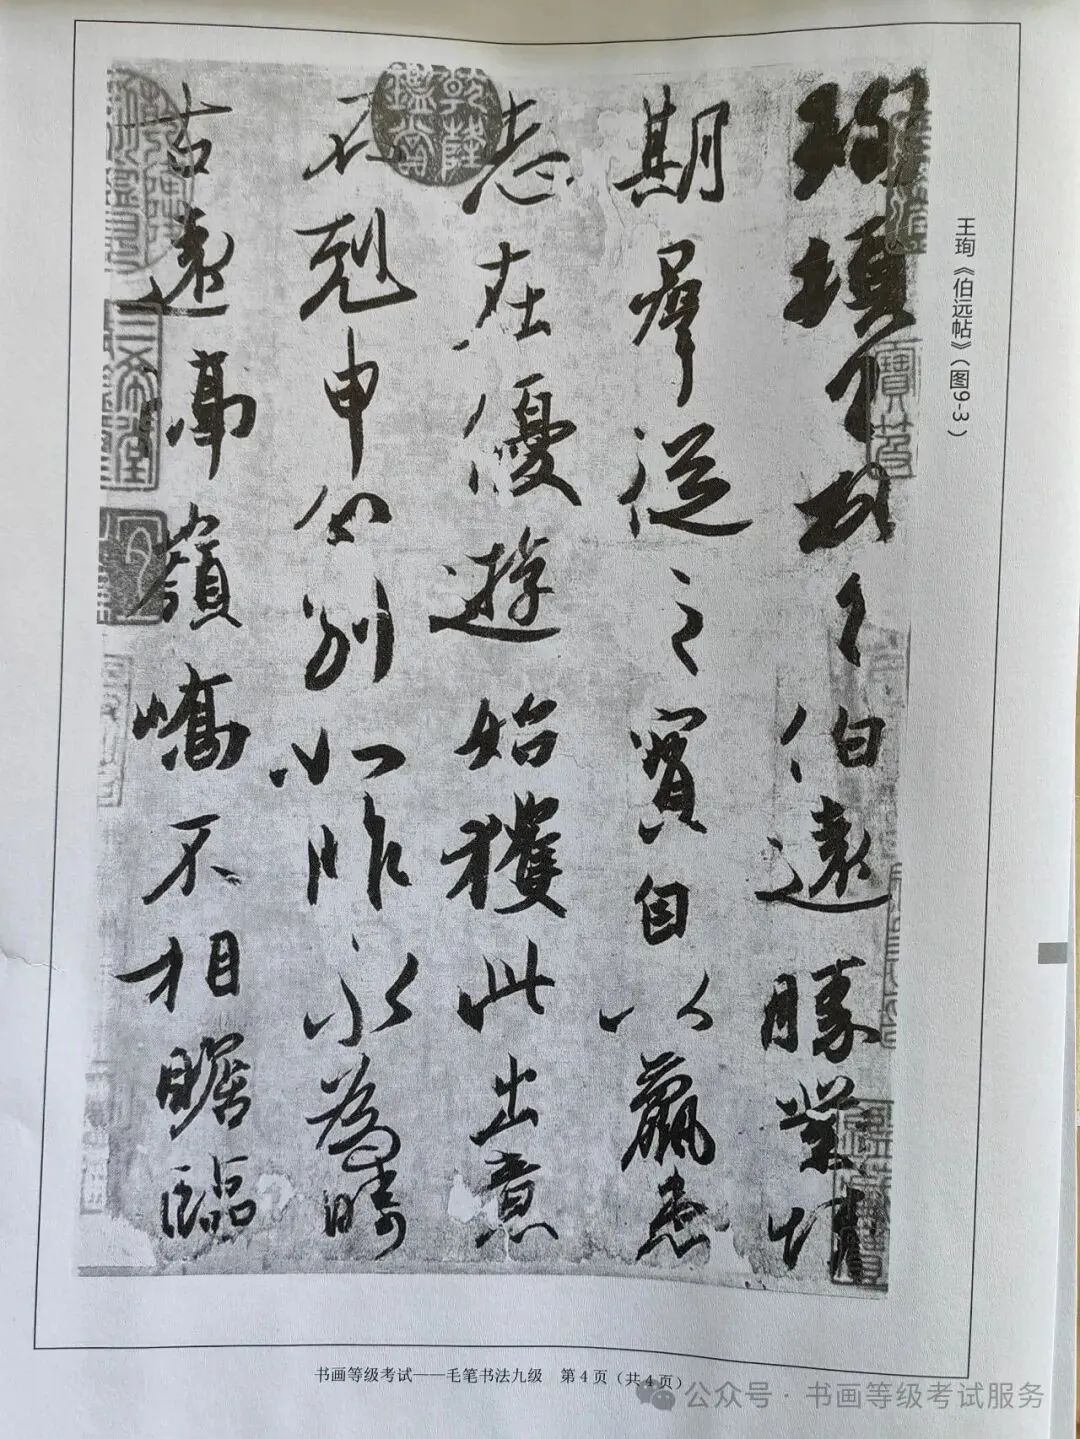 王珣《伯远帖》（图9-3）
珣頓首頓首伯遠勝業情
期羣從之寶自以羸患
志在優遊始獲此出意
不剋申分別如昨永為疇
古遠隔嶺嶠不相瞻臨
乾隆鑑賞
三希堂
書画等级考试——毛笔书法九级 第4页（共4页）
公众号 · 书画等级考试服务